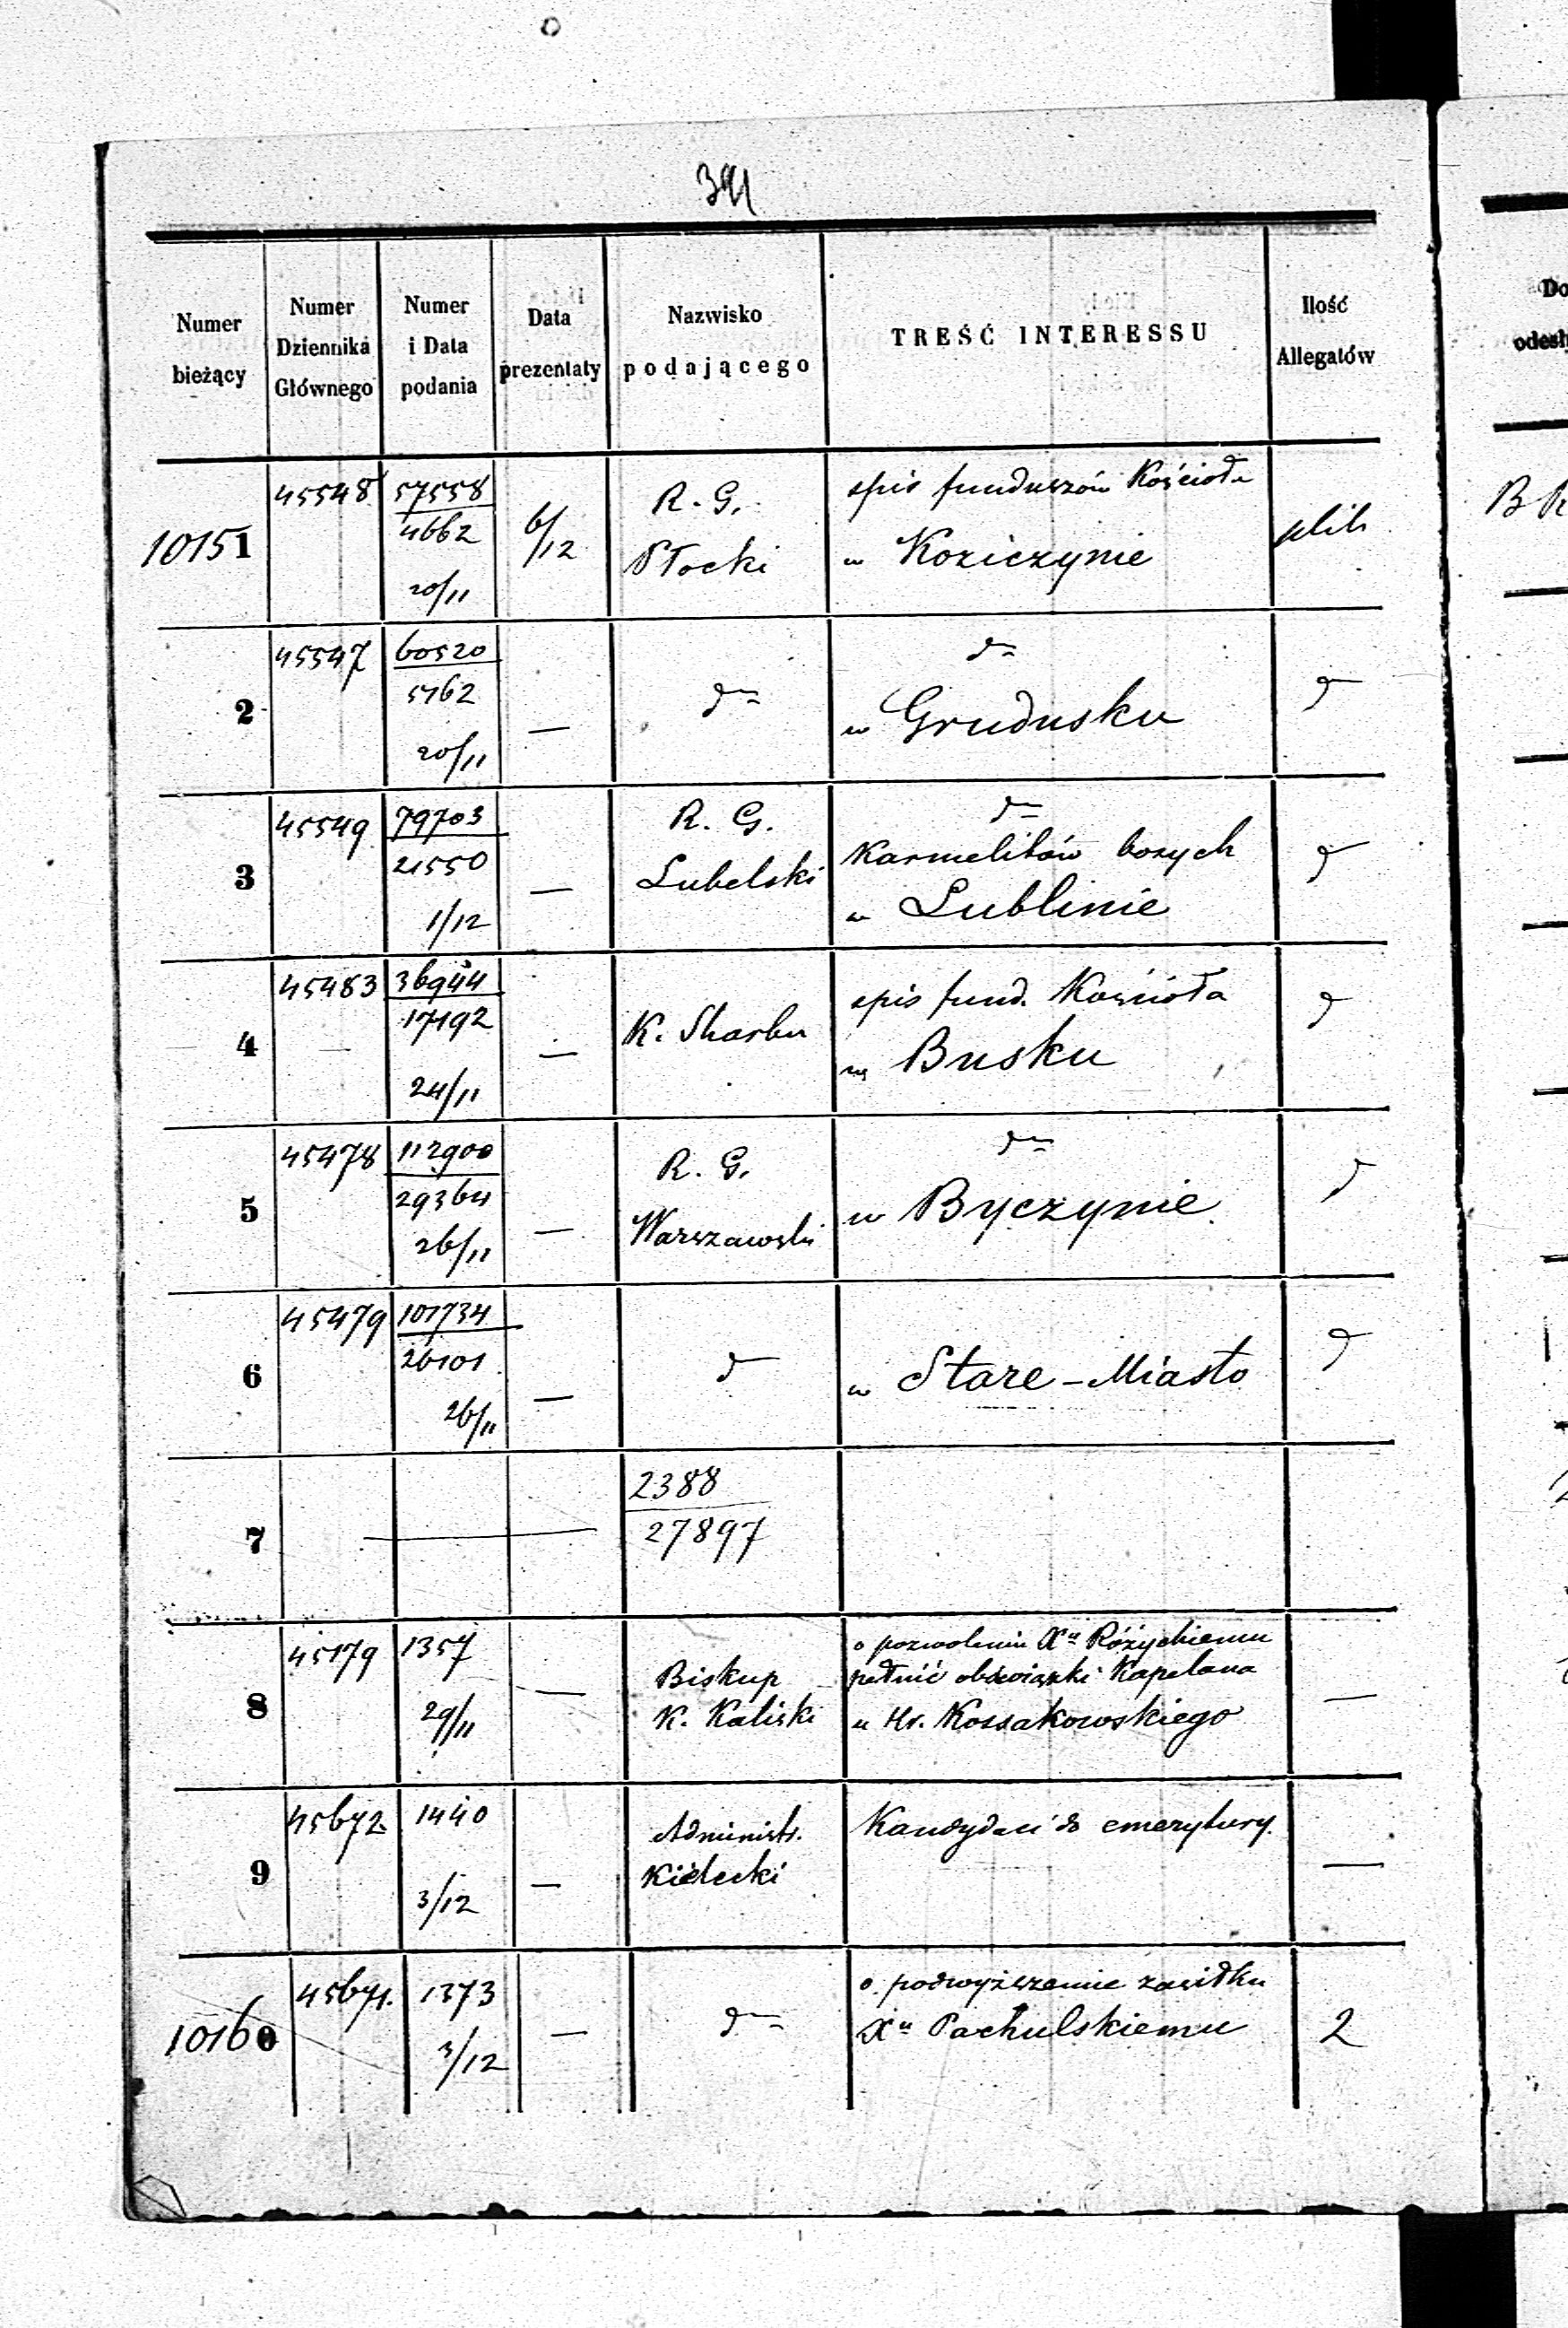 391
Numer bieżący
Numer Dziennika Głównego
Numer i Data podania
Data prezentaty
Nazwisko podającego
TREŚĆ INTERESSU
Ilość Allegatów
10151 45548 57558 6/12 R. G. spis funduszów Kościoła plik
4662 Płocki w Koziczynie
20/11
2 45547 60520 — do do do
5162 w Grudusku
20/11
3 45549 79703 — R. G. do do
21550 Lubelski Karmelitów bosych
1/12 w Lublinie
4 45483 36944 — K. Skarbu spis fund. Kościoła do
17192 w Busku
24/11
5 45478 112900 — R. G. do do
29364 Warszawski w Byczynie
26/11
6 45479 101734 — do w Stare-Miasto do
26101
26/11
7 — 2388
27897
8 45179 1357 — Biskup o pozwolenie Xu Różyckiemu —
29/11 K. Kaliski pełnić obowiązki Kapelana
u Hr. Kossakowskiego
9 45672 1440 — Administr. Kandydaci do emerytury. —
3/12 Kielecki
10160 45671. 1373 — do o podwyższenie zasiłku 2
3/12 Xu Pachulskiemu